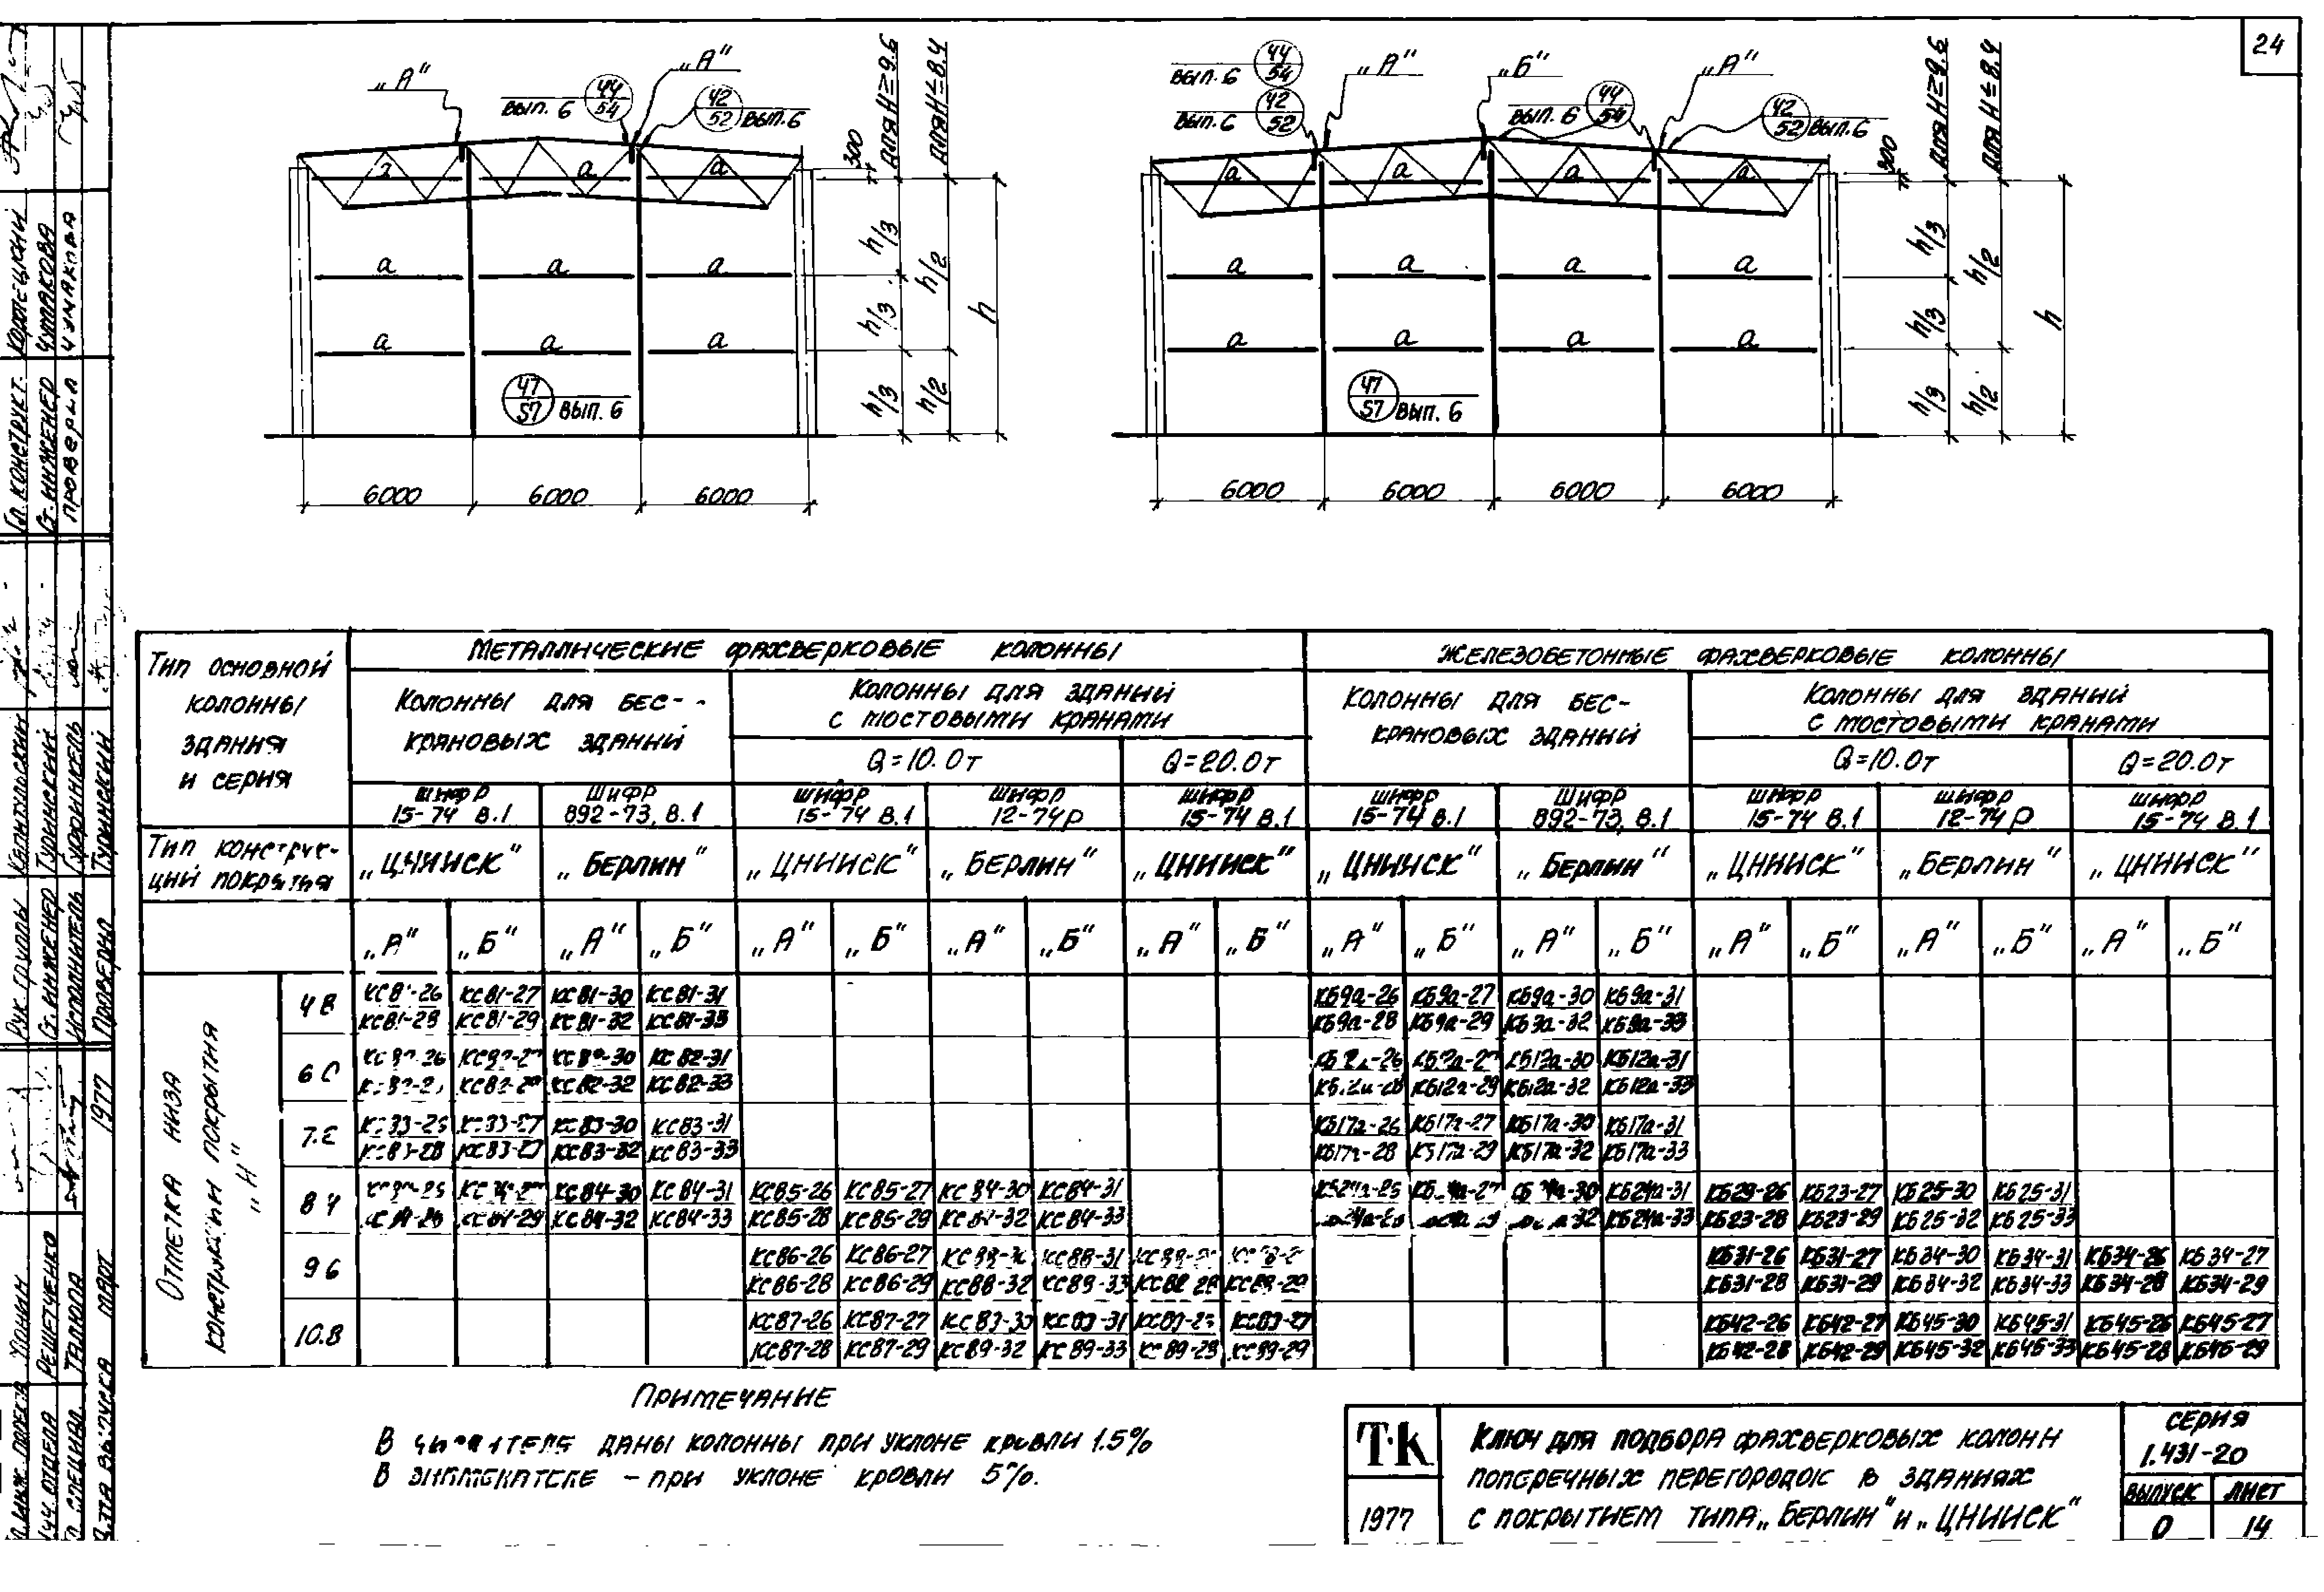 24
„А“
ВЫП. 6
44
54
„А“
42
52
ВЫП. 6
300
ДЛЯ H≥9.6
ДЛЯ H≤8.4
а а
а а а
а а а
47
57
ВЫП. 6
h/3
h/3
h/3
h/2
h/2
h
6000 6000 6000
ВЫП. 6
44
54
ВЫП. 6
42
52
„А“
„Б“
ВЫП. 6
44
54
„А“
42
52
ВЫП. 6
300
ДЛЯ H≥9.6
ДЛЯ H≤8.4
а а а а
а а а а
а а а а
47
57
ВЫП. 6
h/3
h/3
h/3
h/2
h/2
h
6000 6000 6000 6000
Тип основной колонны здания и серия
Металлические фахверковые колонны
Железобетонные фахверковые колонны
Колонны для бес-
крановых зданий
Колонны для зданий
с мостовыми кранами
Q=10.0т
Q=20.0т
Колонны для бес-
крановых зданий
Колонны для зданий
с мостовыми кранами
Q=10.0т
Q=20.0т
шифр 15-74 в.1
шифр 892-73, в.1
шифр 15-74 в.1
шифр 12-74р
шифр 15-74 в.1
шифр 15-74 в.1
шифр 892-73, в.1
шифр 15-74 в.1
шифр 12-74р
шифр 15-74 в.1
Тип конструк-
ций покрытия
„ЦНИИСК“ „Берлин“ „ЦНИИСК“ „Берлин“ „ЦНИИСК“ „ЦНИИСК“ „Берлин“ „ЦНИИСК“ „Берлин“ „ЦНИИСК“
„А“ „Б“ „А“ „Б“ „А“ „Б“ „А“ „Б“ „А“ „Б“ „А“ „Б“ „А“ „Б“ „А“ „Б“ „А“ „Б“ „А“ „Б“
Отметка низа
конструкции покрытия
„Н“
КС81-27 КС81-30 КС81-31 КБ9а-26 КБ9а-27 КБ9а-30 КБ9а-31
КС81-28 КС81-29 КС81-32 КС81-33 КБ9а-28 КБ9а-29 КБ9а-32 КБ9а-33
КС82-31 КБ12а-30 КБ12а-31
КС82-32 КС82-33 КБ12а-29 КБ12а-32 КБ12а-33
КС83-30 КС83-31 КБ17а-26 КБ17а-27 КБ17а-30 КБ17а-31
КС83-28 КС83-32 КС83-33 КБ17а-28 КБ17а-29 КБ17а-32 КБ17а-33
КС84-30 КС84-31 КС85-26 КС85-27 КС84-30 КС84-31 КБ24а-31 КБ23-27 КБ25-30 КБ25-31
КС84-29 КС84-32 КС84-33 КС85-28 КС85-29 КС84-32 КС84-33 КБ24а-33 КБ23-28 КБ23-29 КБ25-32 КБ25-33
9.6
КС86-26 КС86-27 КС88-31 КБ31-26 КБ31-27 КБ34-30 КБ34-31 КБ34-26 КБ34-27
КС86-28 КС86-29 КС88-32 КБ31-28 КБ31-29 КБ34-32 КБ34-33 КБ34-28 КБ34-29
10.8
КС87-26 КС87-27 КС89-31 КС89-27 КБ42-26 КБ42-27 КБ45-30 КБ45-31 КБ45-26 КБ45-27
КС87-28 КС87-29 КС89-32 КС89-33 КС89-29 КБ42-28 КБ42-29 КБ45-32 КБ45-33 КБ45-28 КБ45-29
Примечание
В числителе даны колонны при уклоне кровли 1.5%
В знаменателе – при уклоне кровли 5%.
ТК
1977
Ключ для подбора фахверковых колонн
поперечных перегородок в зданиях
с покрытием типа „Берлин“ и „ЦНИИСК“
Серия
1.431-20
Выпуск Лист
0 14
Гл. конструкт.
Ст. инженер Чумакова
Проверил Чумакова
Рук. группы
Ст. инженер Туринский
Исполнитель
Проверил Туринский
Решетченко
Дата выпуска март 1977